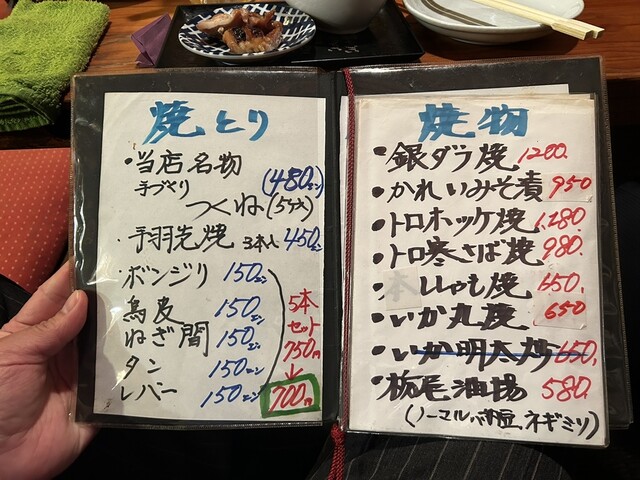 焼とり
・当店名物
手づくり (480エン)
つくね(5ヶ付)
・手羽先焼 3本入 450エン
・ボンジリ 150エン
鳥皮 150エン
ねぎ間 150エン
タン 150エン
レバー 150エン
5本
セット
750円
↓
700円
焼物
・銀ダラ焼 1200.
・かれいみそ漬 950
・トロホッケ焼 1,180.
・トロ寒さば焼 980.
・本ししゃも焼 650.
・いか丸焼 650
・いか明太炒 650.
・栃尾油揚 580.
(ノーマル、ネギミソ)